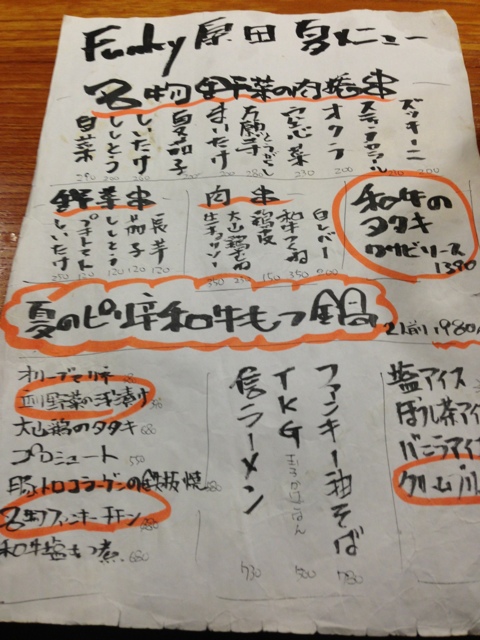 Funky 原田 夏メニュー
名物 野菜の肉巻串
ズッキーニ
オクラ 200
空心菜 230
万願寺とうがらし 280
まいたけ
夏茄子
しいたけ
ししとう 210
白菜 290
野菜串
長芋 120
茄子 120
ししとう 120
プチトマト 120
しいたけ 150
肉串
白レバー 200
和牛つくね 350
鶏皮 150
大山鶏もも 250
生チョリソー
和牛の
タタキ
ワサビソース
1380
夏のピリ辛和牛もつ鍋
2人前 1980
オリーブマリネ
立川野菜の浅漬け
大山鶏のタタキ 680
プロシュート 550
豚トロコラーゲンの鉄板焼
名物ファンキーチキン
和牛塩もつ煮 680
ファンキー油そば 780
TKG たまごかけごはん 500
信ラーメン 730
塩アイス
ほうじ茶アイ
バニラアイ
クリームブリュ